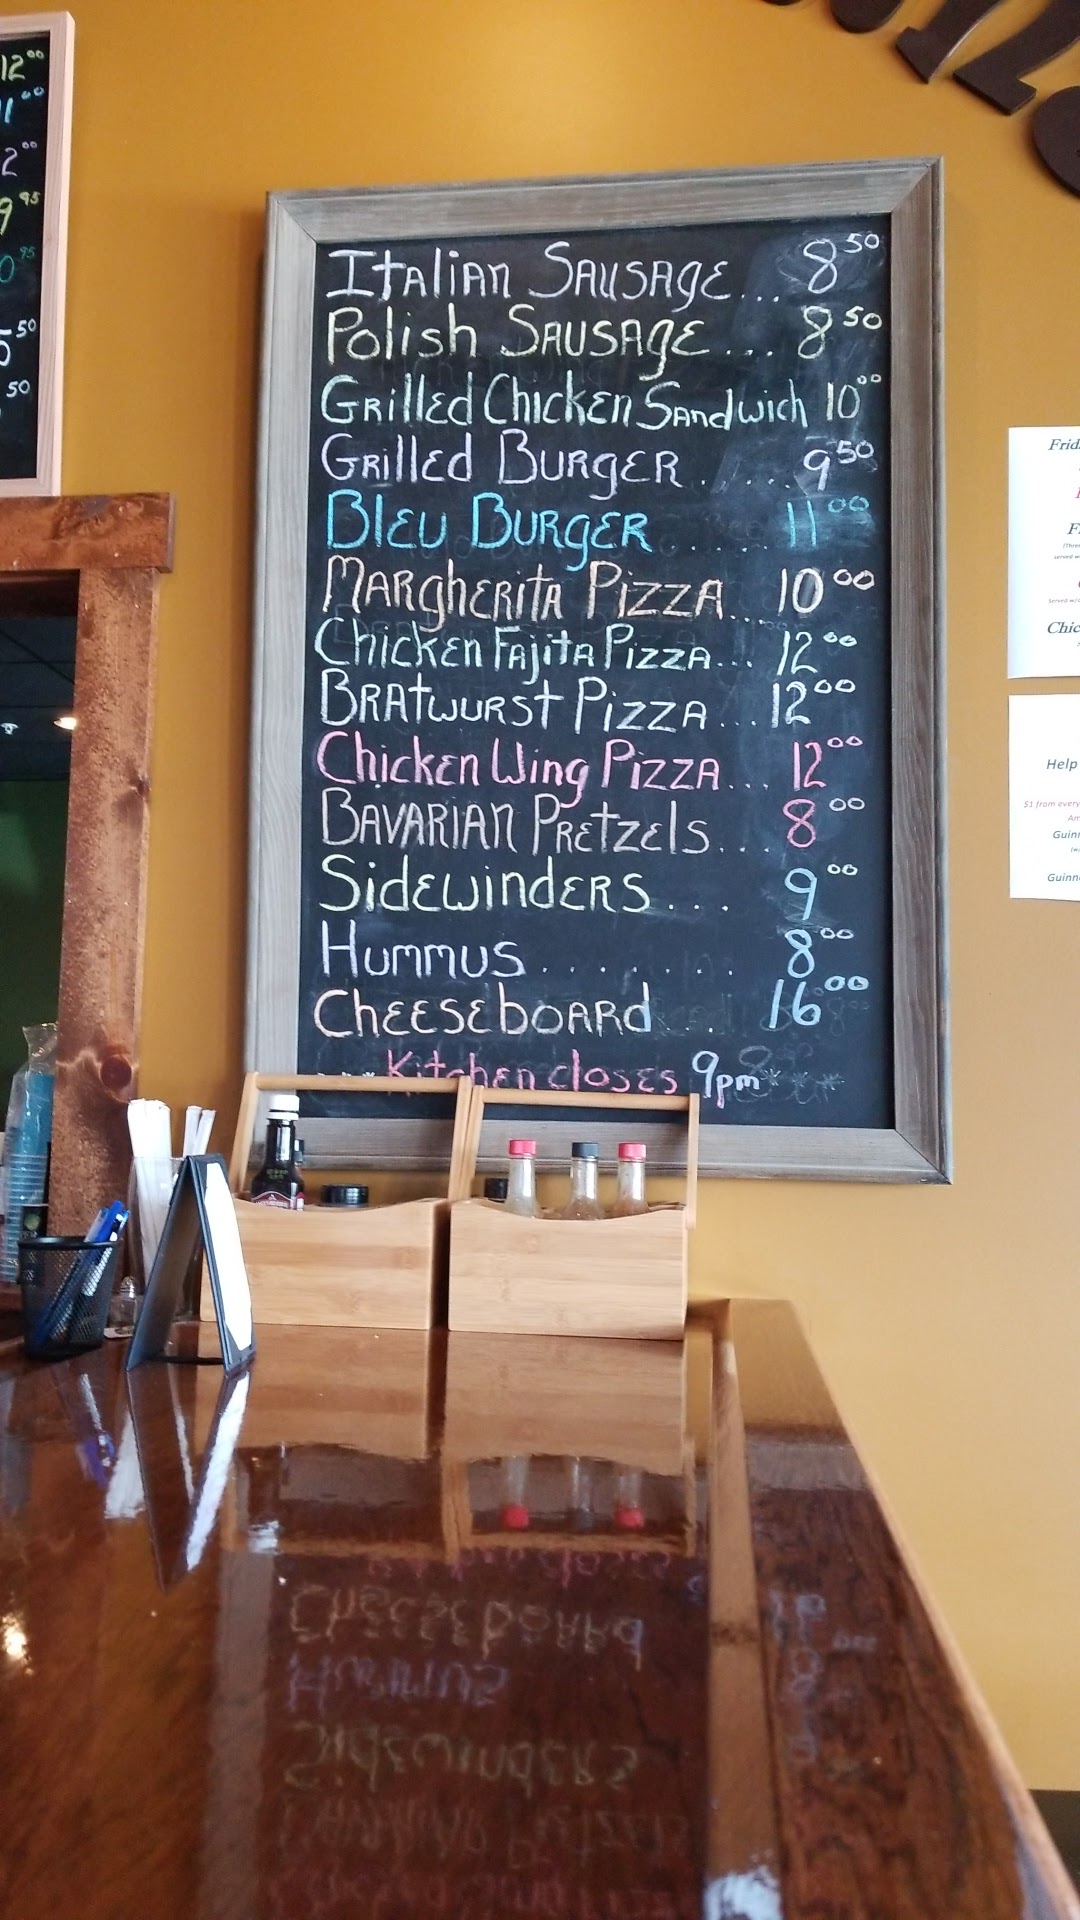 12 00
11 00
2 00
9 95
0 95
5 50
50
Italian Sausage... 8 50
Polish Sausage... 8 50
Grilled Chicken Sandwich 10 00
Grilled Burger...... 9 50
Bleu Burger...... 11 00
Margherita Pizza... 10 00
Chicken Fajita Pizza... 12 00
Bratwurst Pizza... 12 00
Chicken Wing Pizza... 12 00
Bavarian Pretzels... 8 00
Sidewinders... 9 00
Hummus........ 8 00
Cheeseboard... 16 00
*** Kitchen closes 9pm ***
Frid
Chic
Help
$1 from every
Am
Guinn
Guinn